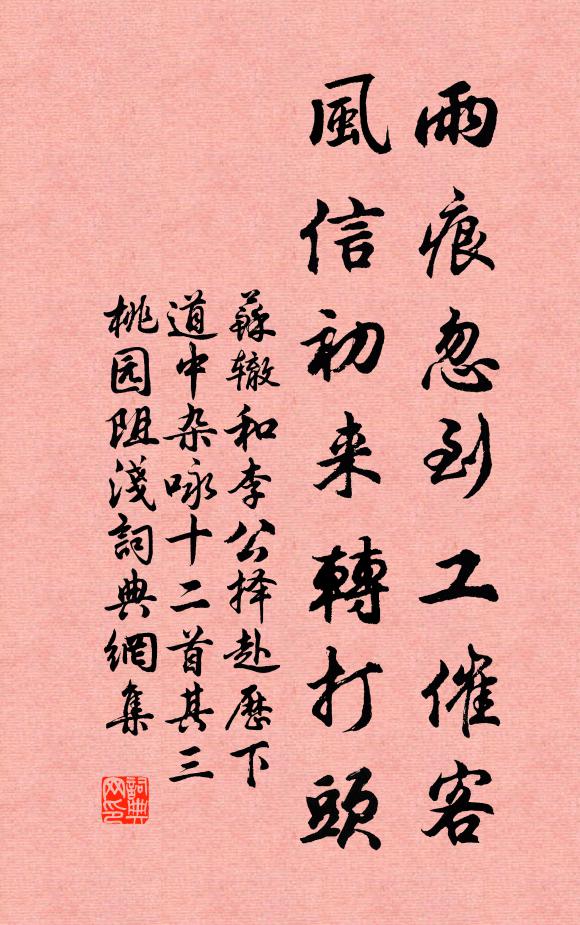 雨痕忽到工催客
風信初来轉打頭
蘇辙和李公择赴歷下
道中杂咏十二首其三
桃园阻淺詞典網集
詞典网印